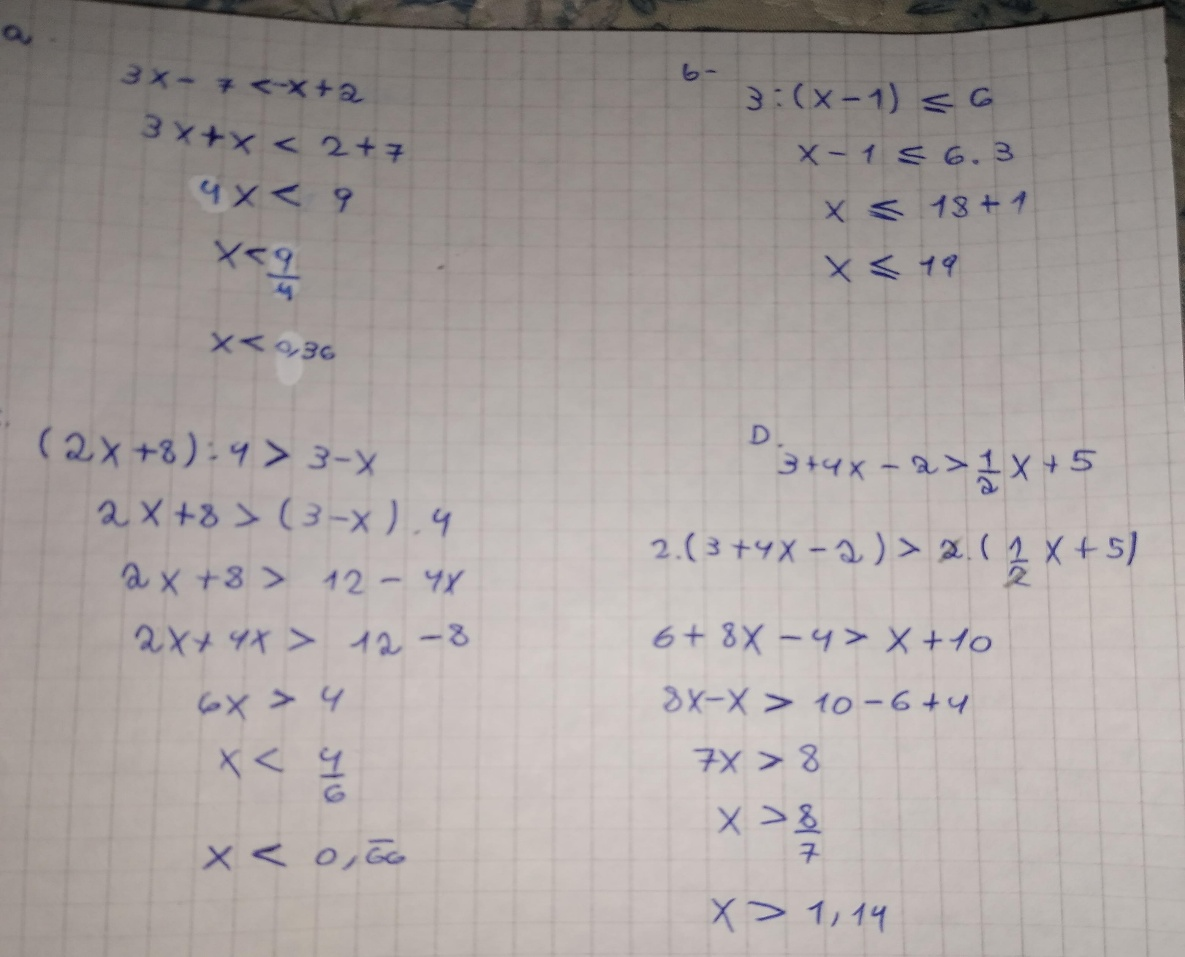 a.
3x - 7 < -x + 2
3x + x < 2 + 7
4x < 9
x < 9/4
x < 0,36
b-
3 : (x - 1) ≤ 6
x - 1 ≤ 6 . 3
x ≤ 18 + 1
x ≤ 19
(2x + 8) : 4 > 3 - x
2x + 8 > (3 - x) . 4
2x + 8 > 12 - 4x
2x + 4x > 12 - 8
6x > 4
x < 4/6
x < 0,6̅6̅
D.
3 + 4x - 2 > 1/2 x + 5
2.(3 + 4x - 2) > 2.(1/2 x + 5)
6 + 8x - 4 > x + 10
8x - x > 10 - 6 + 4
7x > 8
x > 8/7
x > 1,14